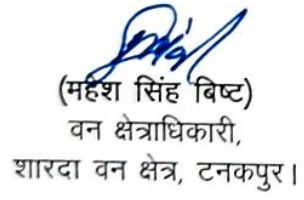 (महेश सिंह बिष्ट)
वन क्षेत्राधिकारी,
शारदा वन क्षेत्र, टनकपुर।